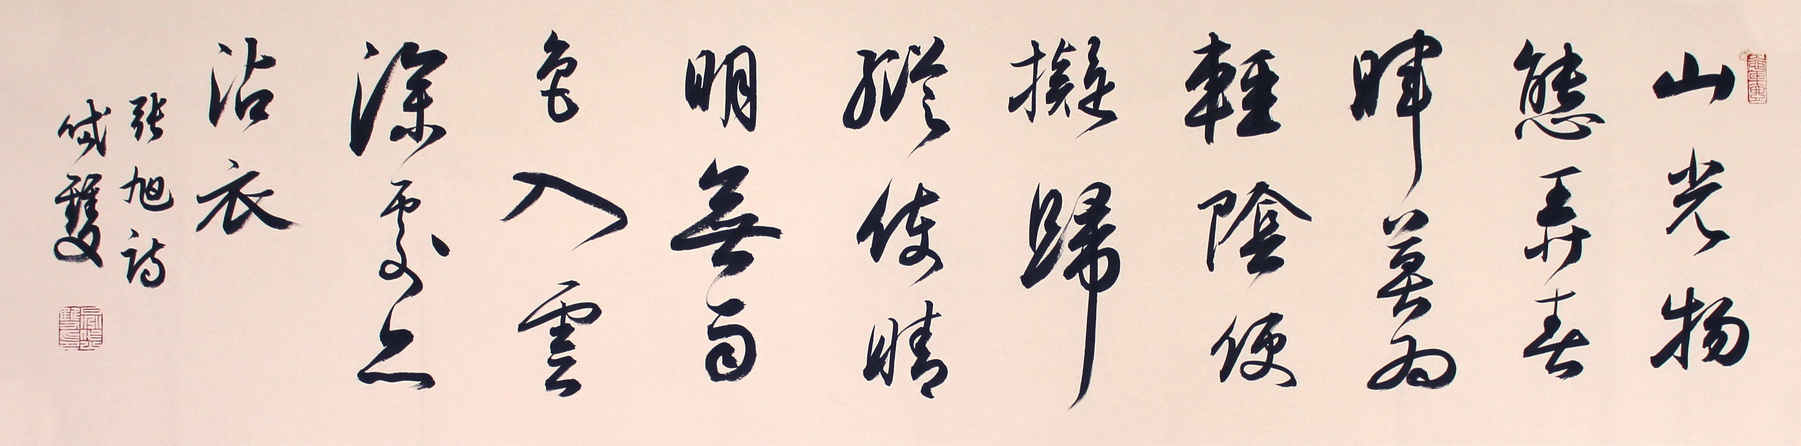 山光物
態弄春
暉莫為
輕陰便
擬歸
縱使晴
明無雨
色入雲
深處亦
沾衣
張旭詩